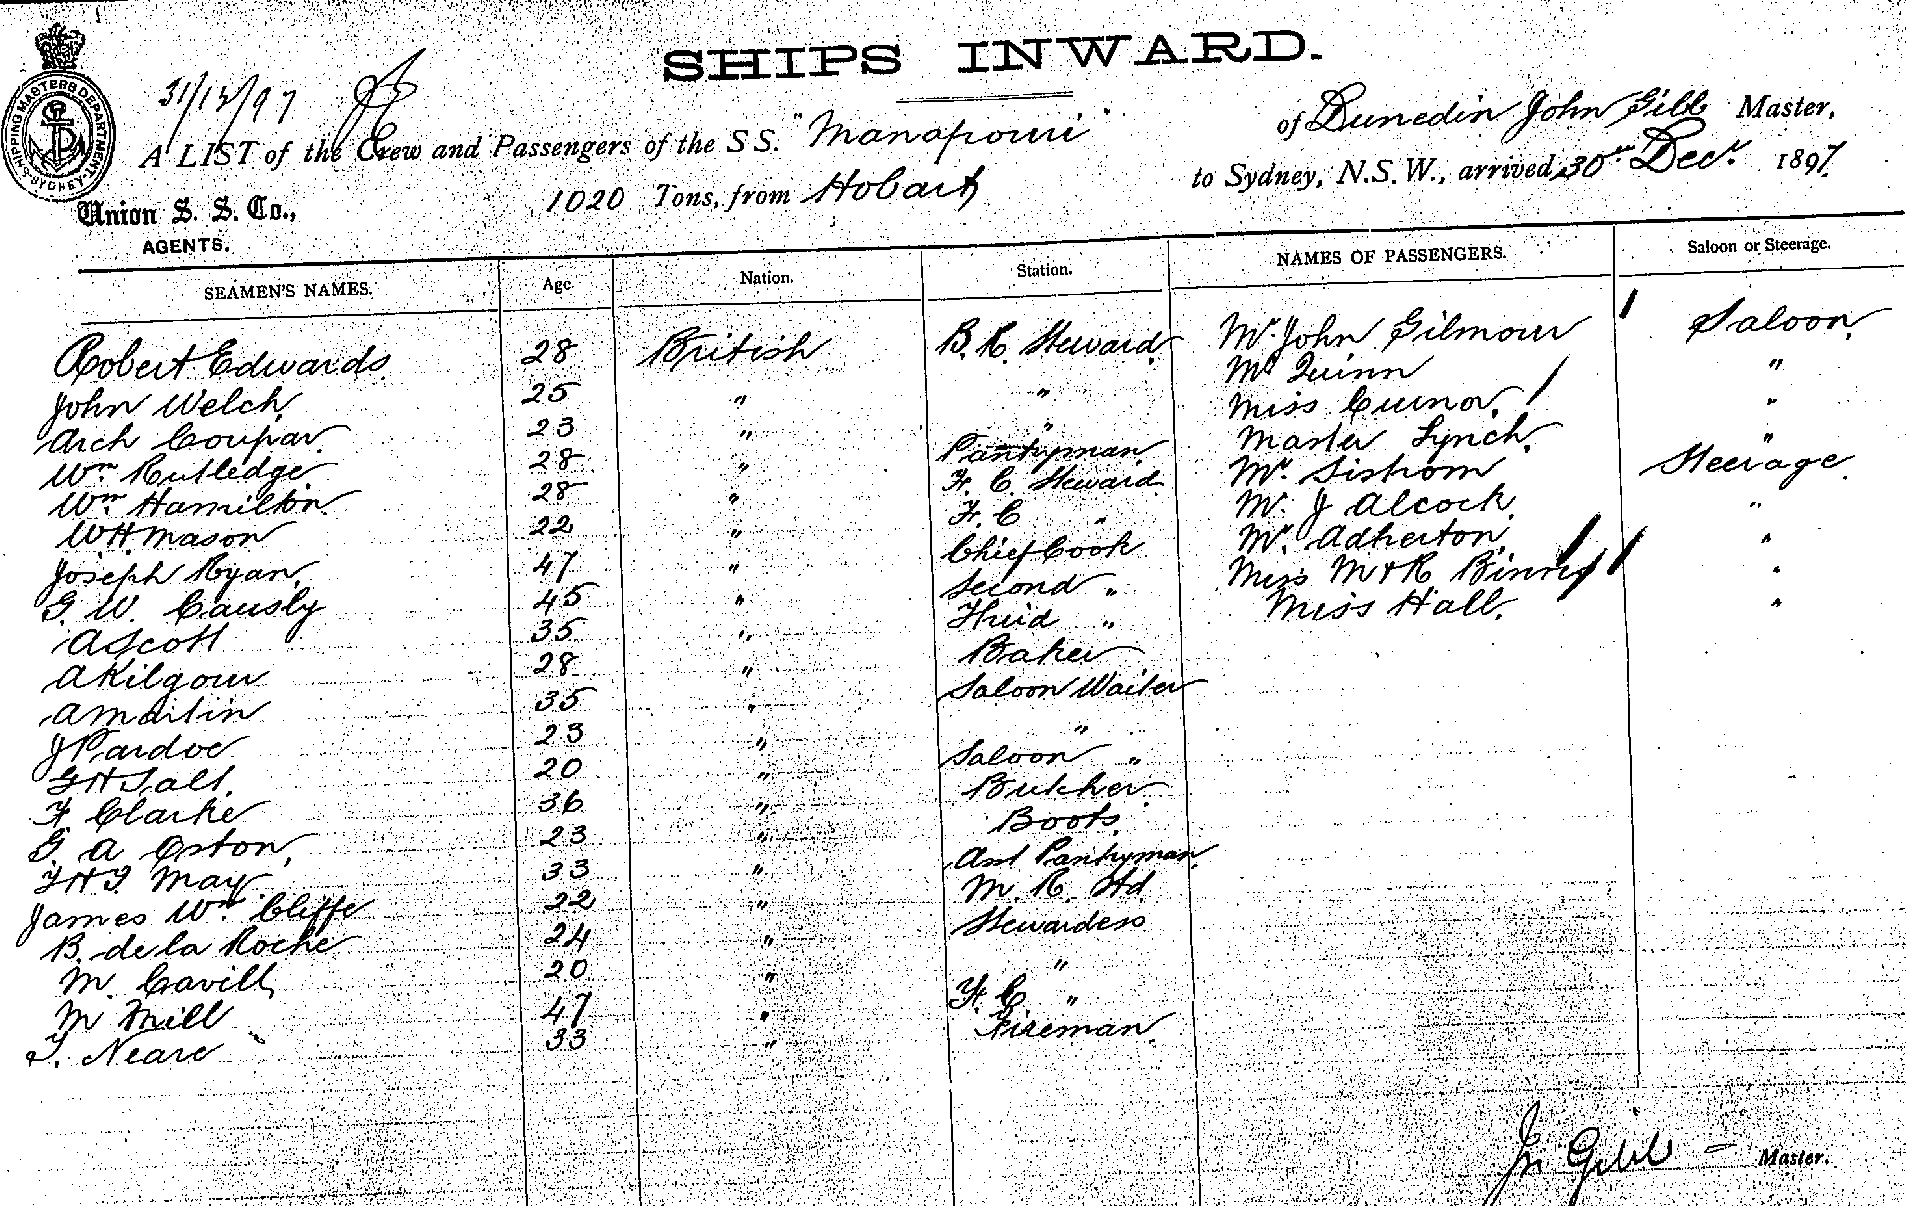 SHIPS INWARD.
SHIPPING MASTERS DEPARTMENT SYDNEY
31/12/97
A LIST of the Crew and Passengers of the S S. "Manapouri" of Dunedin John Gibb Master,
Union S. S. Co., 1020 Tons, from Hobart to Sydney, N.S.W., arrived 30th Decr. 1897
AGENTS.
SEAMEN'S NAMES. Age Nation. Station. NAMES OF PASSENGERS. Saloon or Steerage.
Robert Edwards 28 British B. R. Steward Mr. John Gilmour Saloon.
John Welch. 25 " " Mr Quinn "
Arch Coupar. 23 " " Miss "
Wm. Rutledge. 28 " Pantryman Master Lynch. "
Wm. Hamilton 28 " F. C. Steward Mr. Sistrom Steerage
W H. Mason 22 " F. C " Mr. J Alcock. "
Joseph Ryan. 47 " Chief Cook Mr. Adherton "
G. W. Causly 45 " Second " Miss M & R
A Scott 35 " Third " Miss Hall. "
A Kilgour 28 " Baker
A Martin 35 " Saloon Waiter
J Pardoe 23 " "
G H Salt. 20 " Saloon "
F Clarke 36 " Butcher.
G. A Orton, 23 " Boots.
May 33 " Asst Pantryman
James Wm. Cliffe 22 " M. R. Std
B. de la Roche 24 " Stewardess
M. Cavill 20 " "
M Mill 47 " F. C "
T. Neare 33 " Fireman.
Jn Gibb Master.